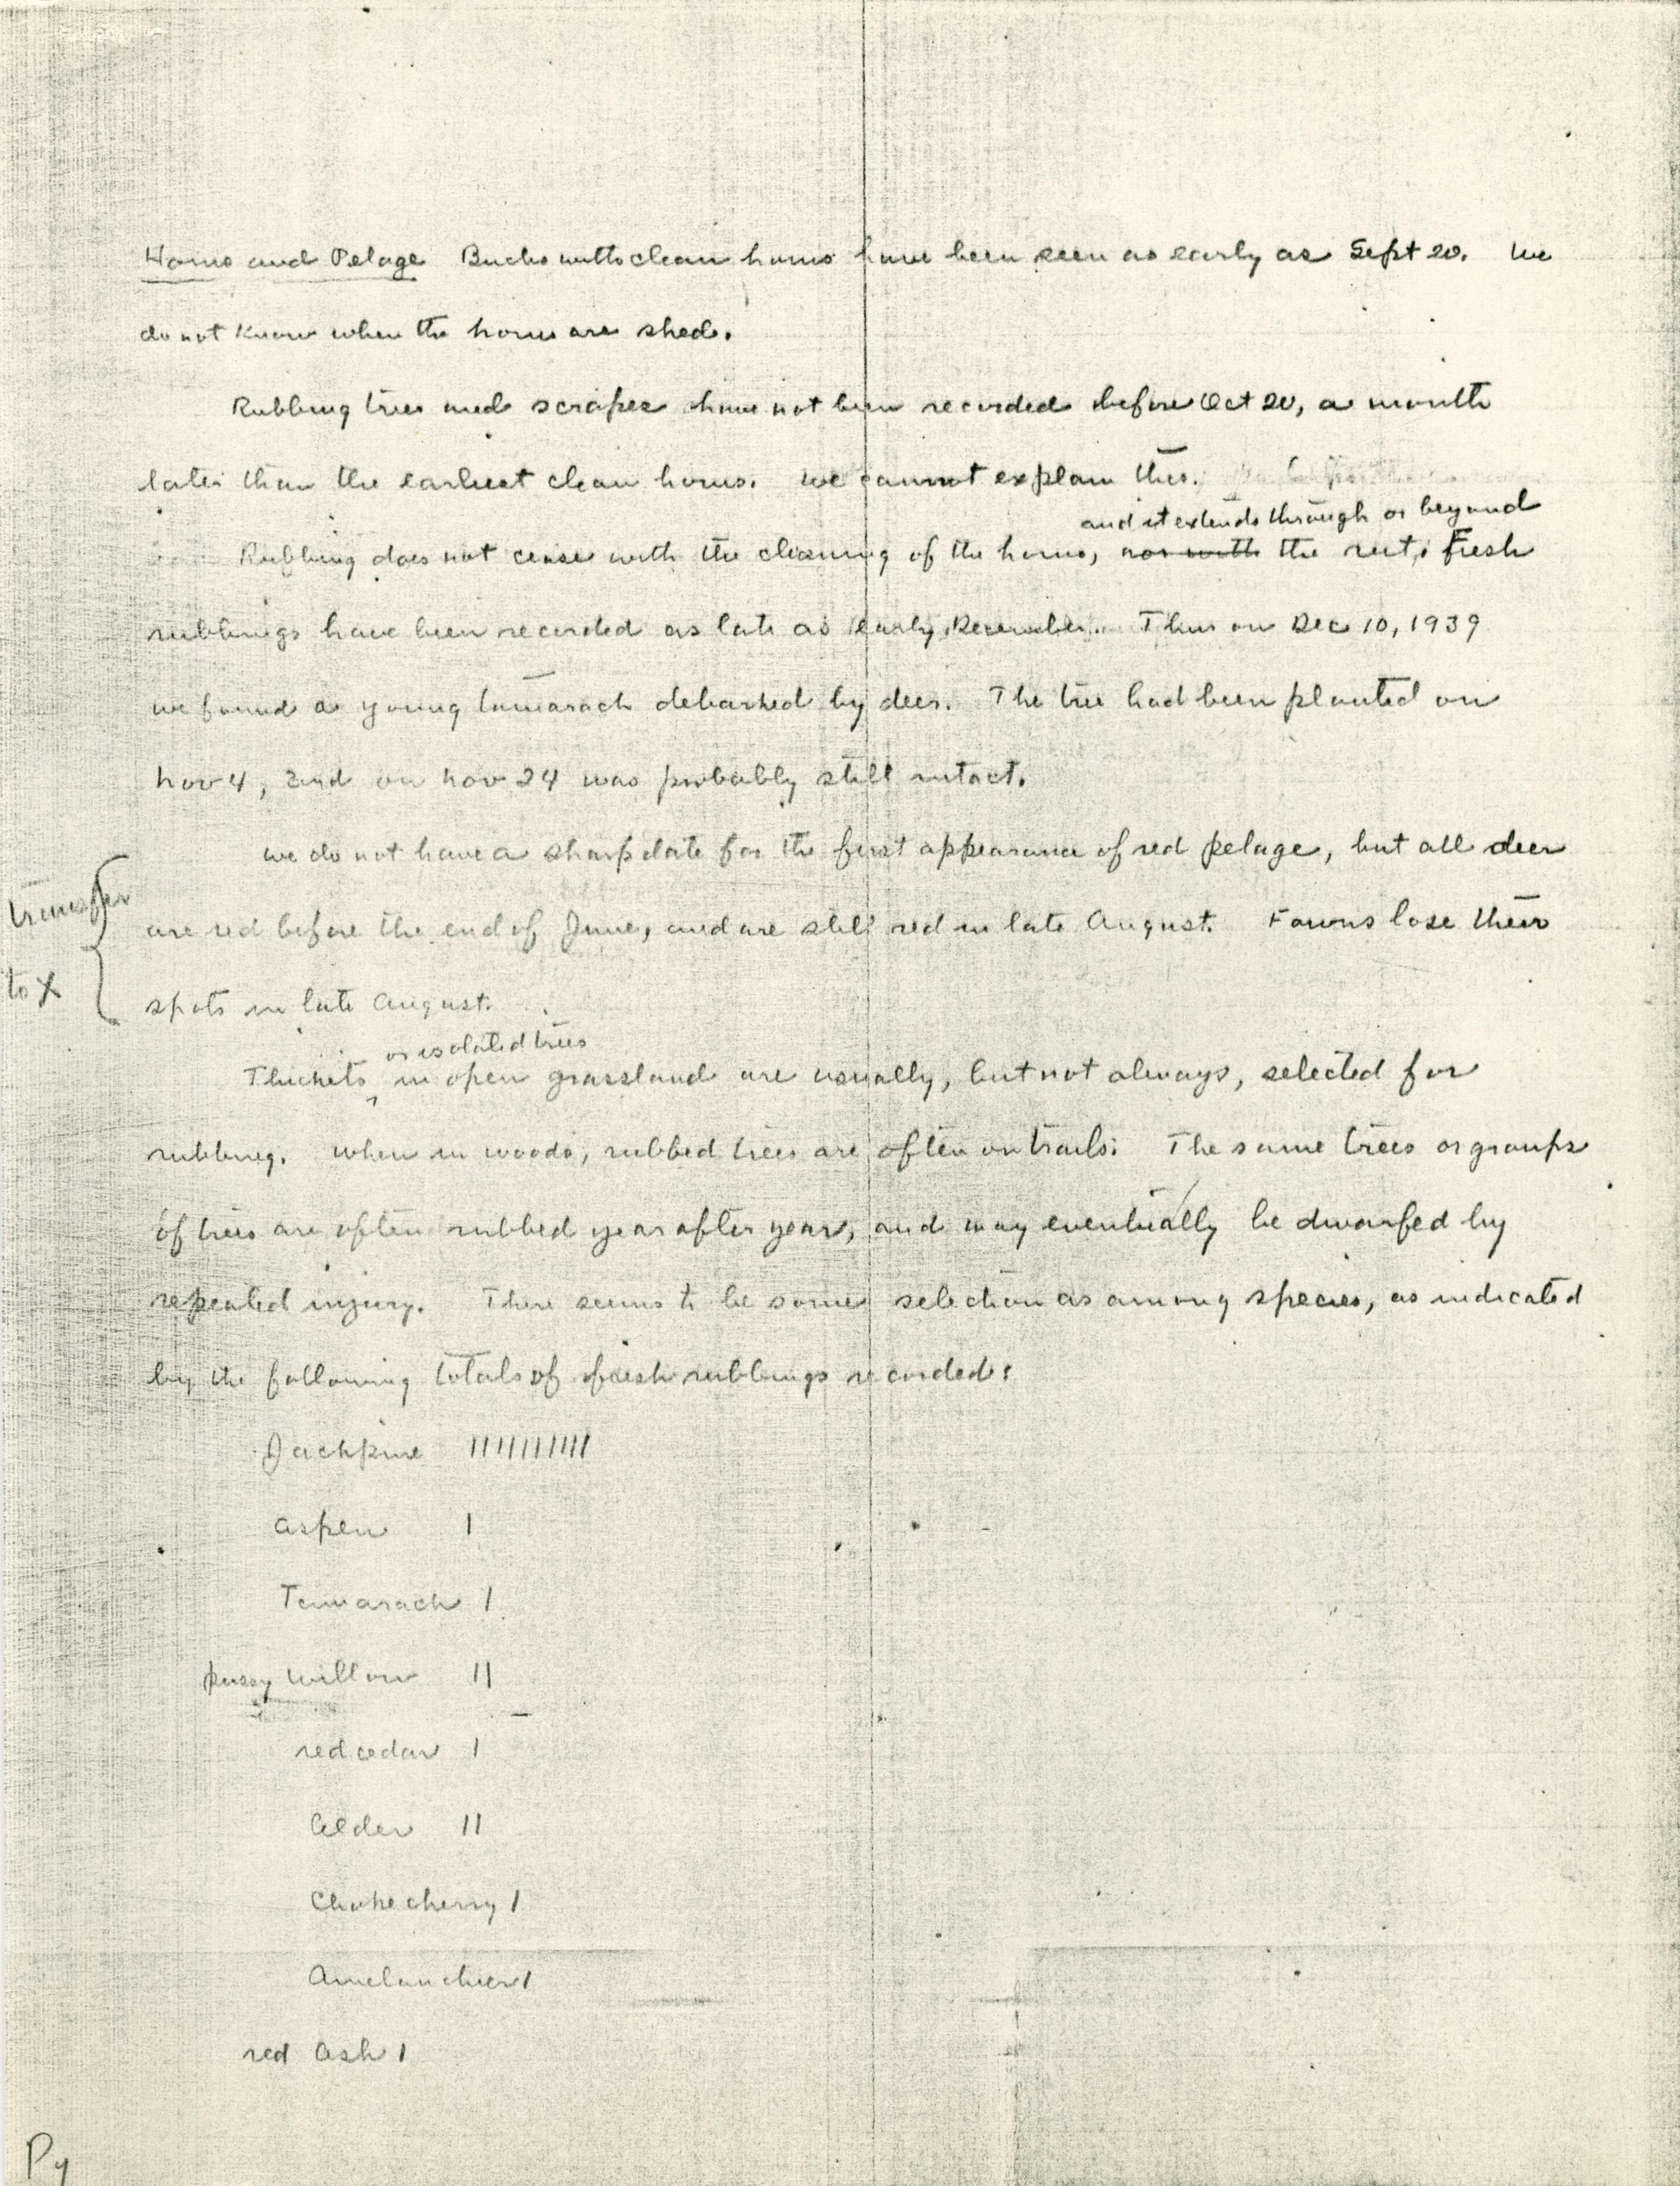 Horns and Pelage Bucks with clean horns have been seen as early as Sept 20. We
do not know when the horns are shed.
Rubbing trees and scrapes have not been recorded before Oct 20, a month
later than the earliest clean horns. We cannot explain this.
and it extends through or beyond
Rubbing does not cease with the cleaning of the horns, nor with the rut. Fresh
rubbings have been recorded as late as early December. Thus on Dec 10, 1939
we found a young tamarack debarked by deer. The tree had been planted on
Nov 4, and on Nov 24 was probably still intact.
We do not have a sharp date for the first appearance of red pelage, but all deer
transfer
are red before the end of June, and are still red in late August. Fawns lose their
to X
spots in late August.
or isolated trees
Thickets ^ in open grassland are usually, but not always, selected for
rubbing. When in woods, rubbed trees are often on trails. The same trees or groups
of trees are often rubbed year after year, and may eventually be dwarfed by
repeated injury. There seems to be some selection as among species, as indicated
by the following totals of fresh rubbings recorded:
Jackpine |||||||||||
Aspen |
Tamarack |
pussy willow ||
red cedar |
Alder ||
Chokecherry |
Amelanchier |
red Ash |